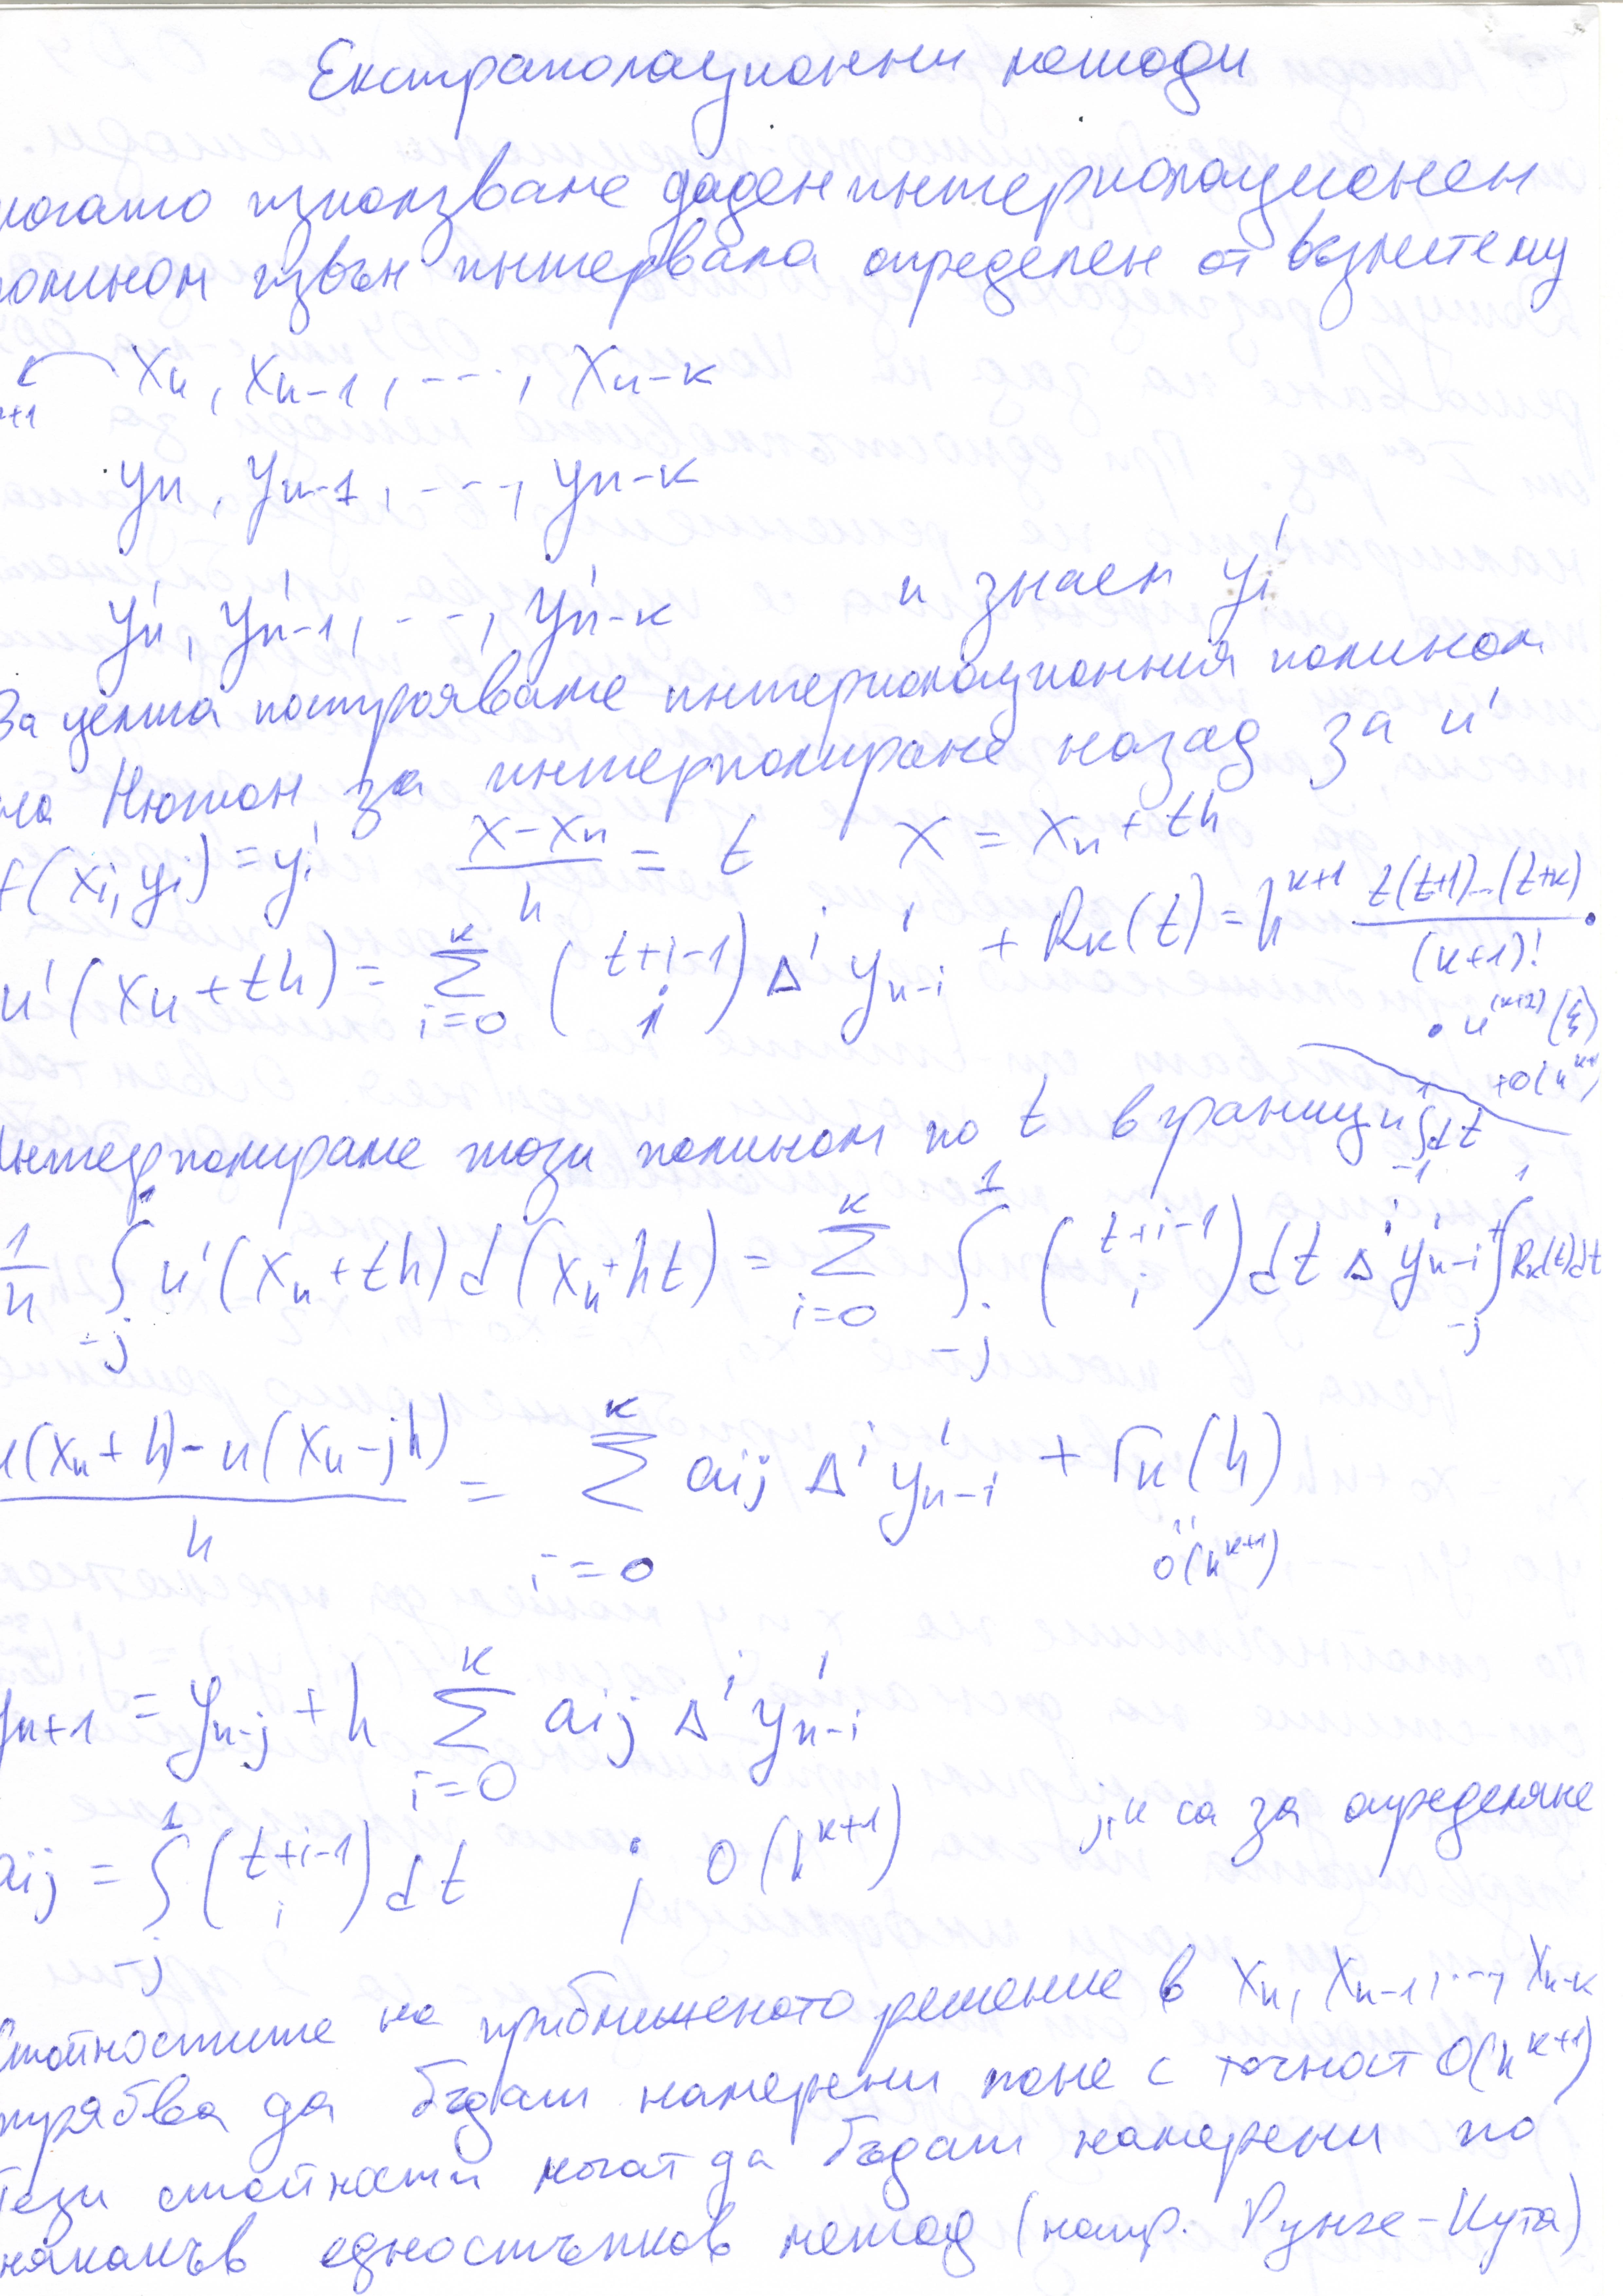 Екстраполационни методи
когато използваме даден интерполационен
полином извън интервала определен от възлите му
n+1 xn, xn-1, ---, xn-k
yn, yn-1, ---, yn-k
y'n, y'n-1, ---, y'n-k и знаем y'i
За целта построяваме интерполационния полином
на Нютон за интерполиране назад за u'
f(xi, yi) = y'i (x - xn)/h = t x = xn + th
u'(xn + th) = Σ_{i=0}^{k} (t+i-1 над i) Δ^i y'n-i + Rk(t) = h^{k+1} t(t+1)...(t+k)/(k+1)! .
. u^{(k+2)}(ξ)
+O(h^{k+1})
Интерполираме този полином по t в граници ∫_{-1}^{1} dt
1/h ∫_{-j}^{1} u'(xn + th) d(xn + ht) = Σ_{i=0}^{k} ∫_{-j}^{1} (t+i-1 над i) dt Δ^i y'n-i + ∫_{-j}^{1} Rk(t) dt
(u(xn + h) - u(xn - jh))/h = Σ_{i=0}^{k} aij Δ^i y'n-i + rk(h)
O(h^{k+1})
yn+1 = yn-j + h Σ_{i=0}^{k} aij Δ^i y'n-i
aij = ∫_{-j}^{1} (t+i-1 над i) dt ; O(h^{k+1}) j,k са за определяне
Стойностите на приближеното решение в xn, xn-1, ..., xn-k
трябва да бъдат намерени поне с точност O(h^{k+1})
Тези стойности могат да бъдат намерени по
някакъв едностъпков метод (напр. Рунге-Кута)